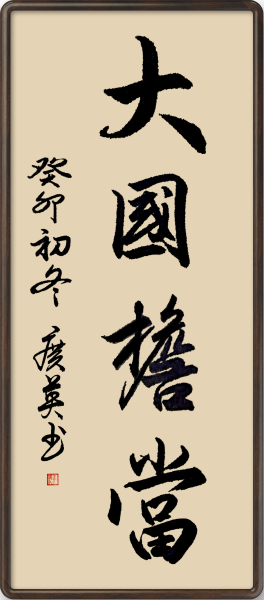 大國擔當
癸卯初冬 廣英书